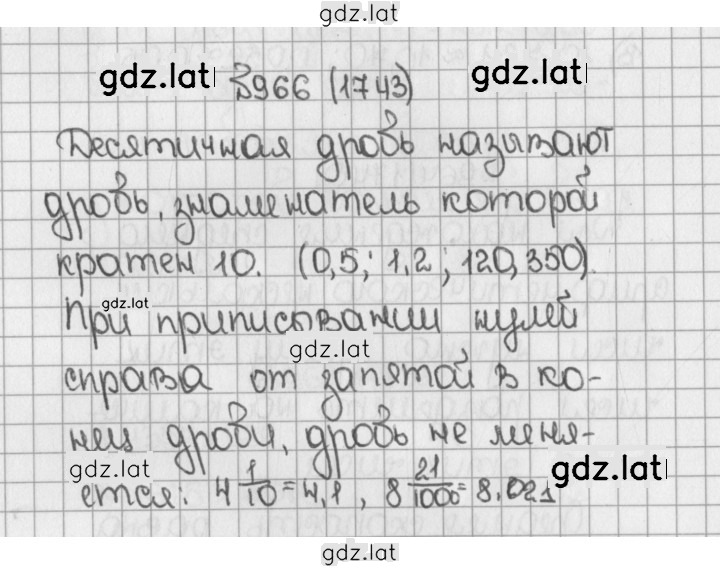 gdz.lat
gdz.lat №966 (1743) gdz.lat
Десятичная дробь называют
дробь, знаменатель которой
кратен 10. (0,5; 1,2; 120,350).
gdz.lat
При приписывании нулей
gdz.lat
справа от запятой в ко-
нец дроби, дробь не меня-
gdz.lat gdz.lat
ется: 4 1/10 = 4,1, 8 21/1000 = 8,021
gdz.lat